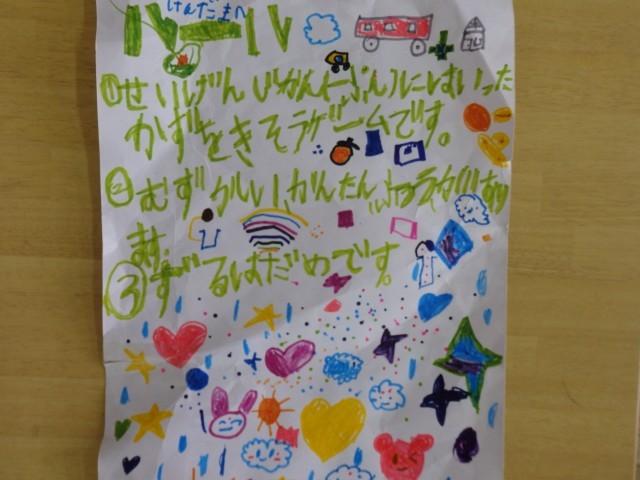 けんだまへ
ルール
①せいげんじかん(一ぷん)にはいった
かずをきそうゲームです。
②むずかしい、かんたん、ふつうがあり
ます。
③ずるはだめです。